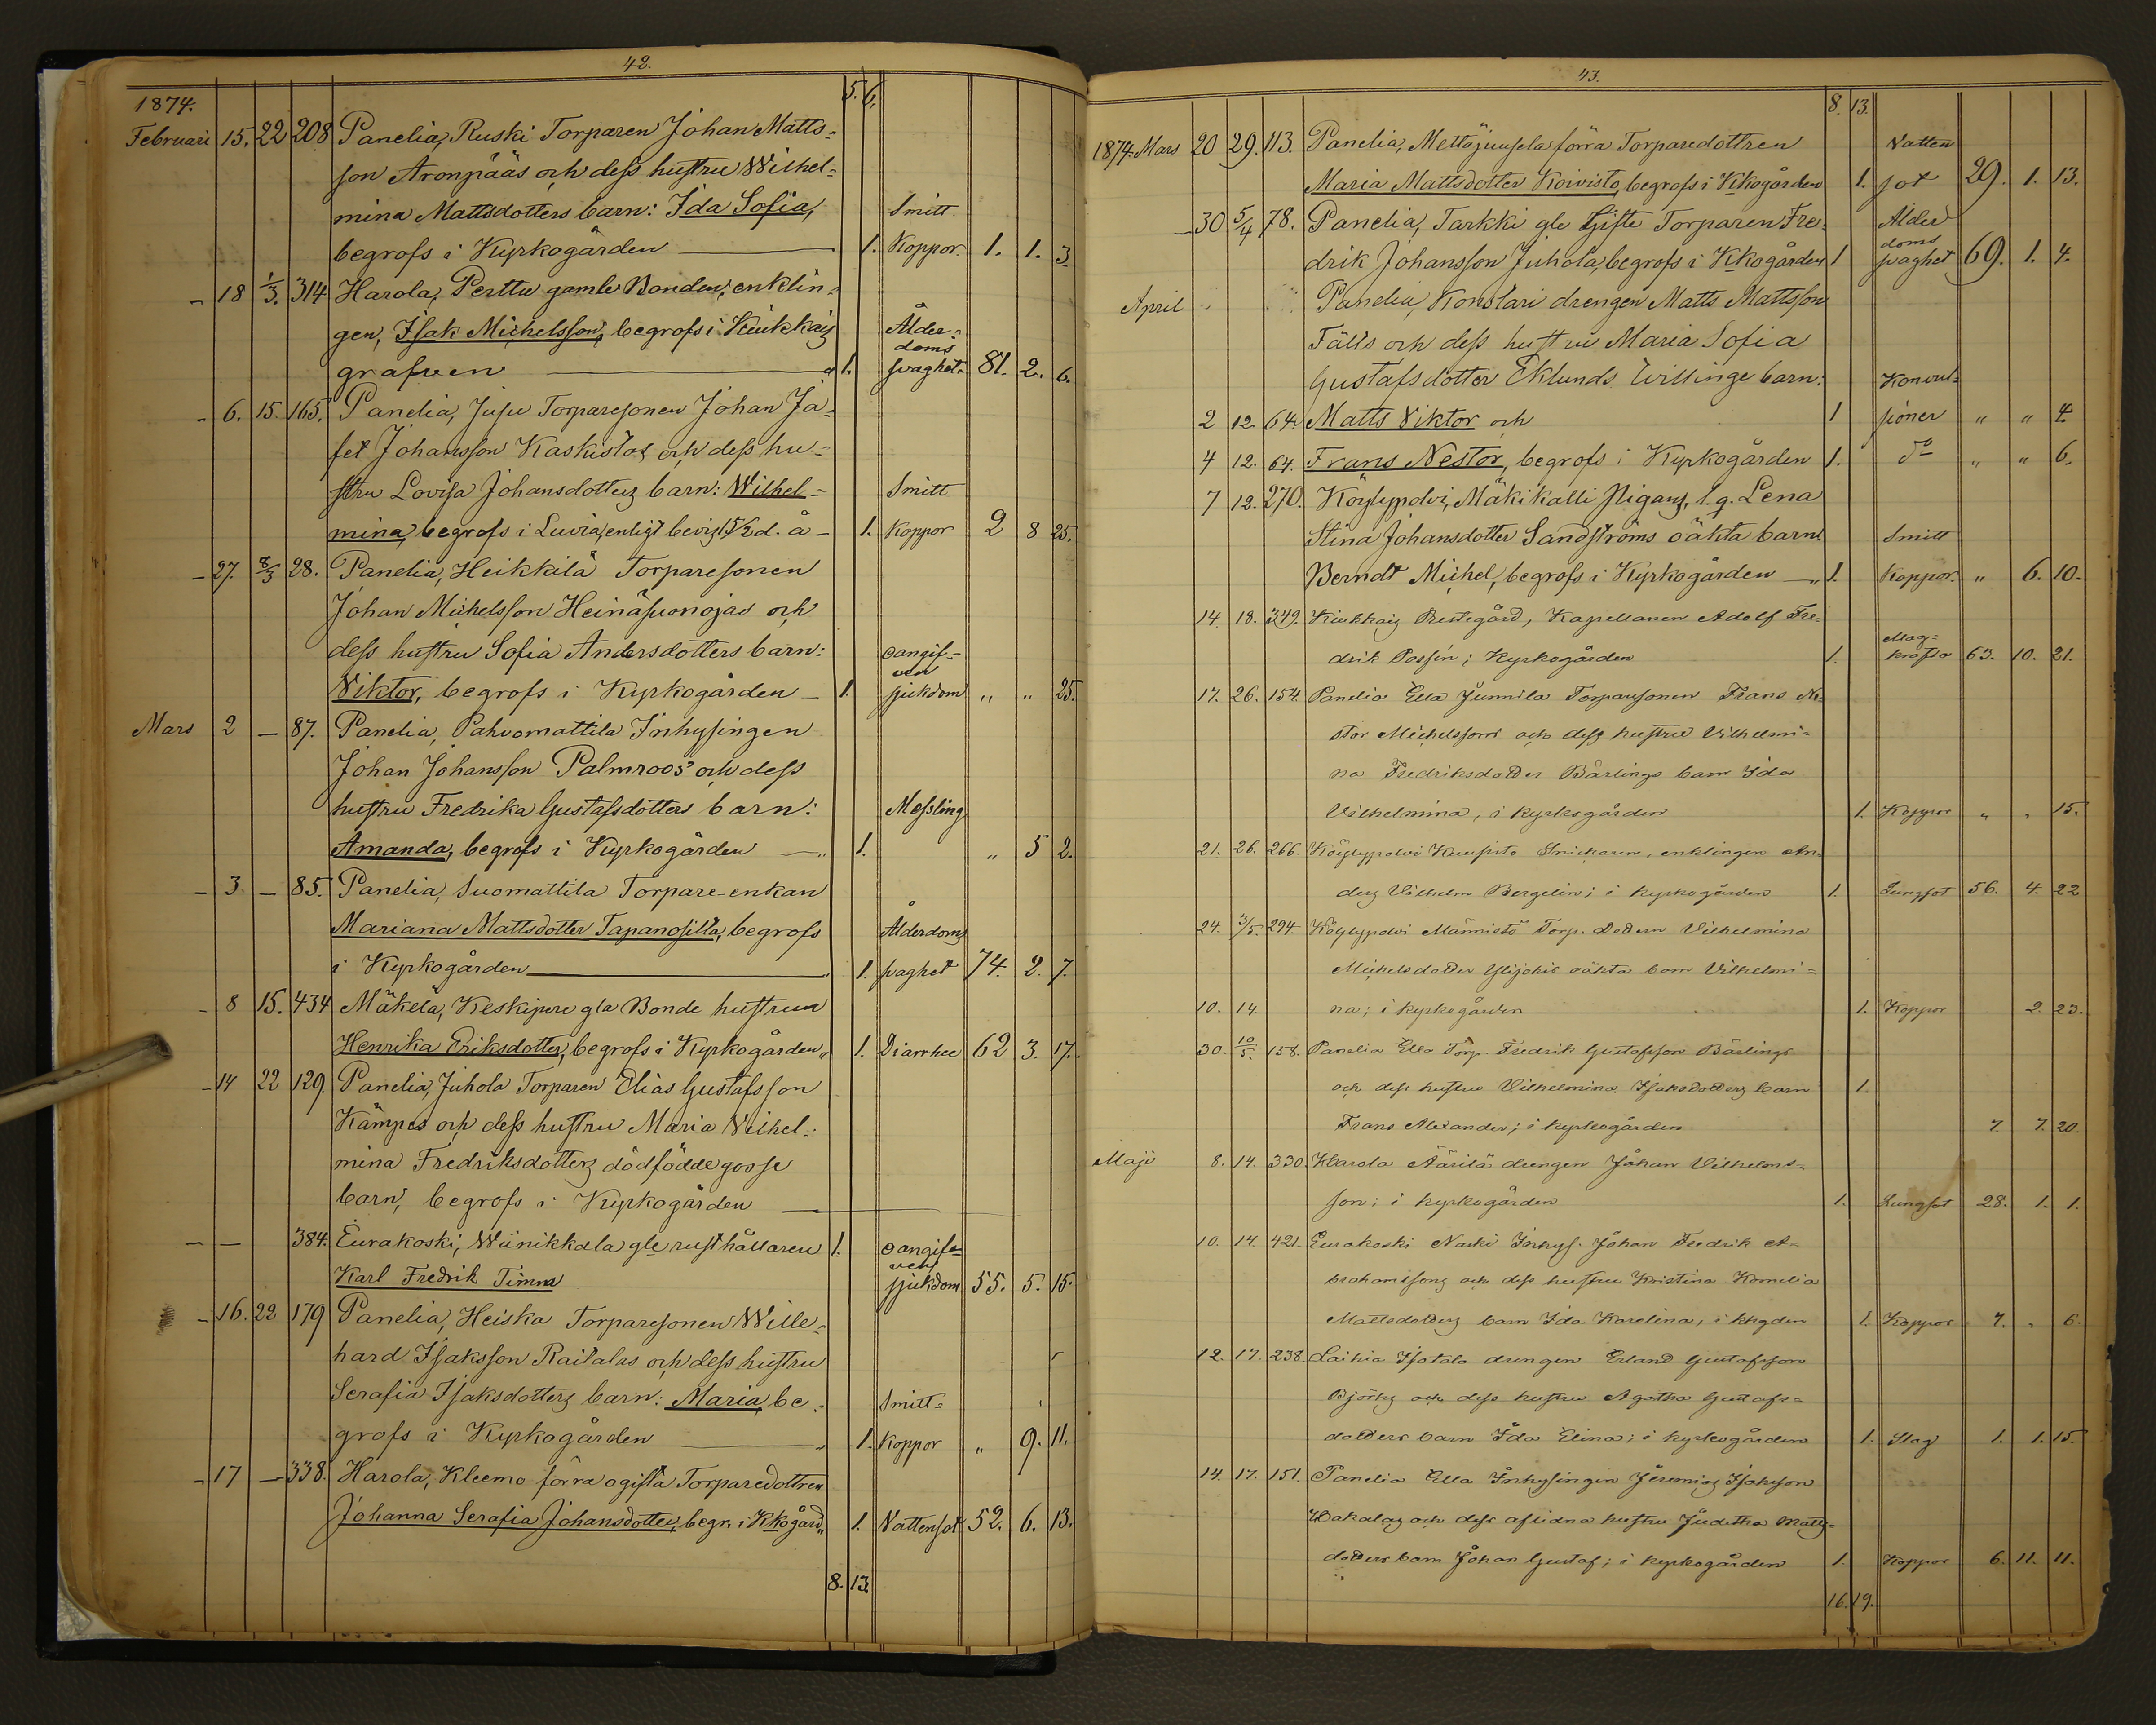 42.
1874. 5. 6.
Februari 15. 22 208 Panelia, Ruski Torparen Johan Matts-
son Aronpääs och dess hustru Wilhel-
mina Mattsdotters barn: Ida Sofia, Smitt
begrofs i Kyrkogården 1. Koppor. 1. 1. 3
- 18 1/3. 314 Harola, Perttu gamle Bonden, enklin-
gen, Isak Michelsson, begrofs i Kiukkais Ålder-
doms
grafven 1. svaghet 81. 2. 6.
- 6. 15. 165. Panelia, Jusu Torparesonen Johan Ja-
fet Johansson Kaskistos och dess hu-
stru Lovisa Johansdotters barn: Wilhel- Smitt
mina, begrofs i Luvia, enligt bevis 15/2 d. å - 1. Koppor 2 8 25.
- 27. 8/3 28. Panelia, Heikkilä Torparesonen
Johan Michelsson Heinäsuonojas och
dess hustru Sofia Andersdotters barn: oangif-
ven
Viktor, begrofs i Kyrkogården - 1. sjukdom " " 25.
Mars 2 - 87. Panelia, Pahvomattila Inhysingen
Johan Johansson Palmroos' och dess
hustru Fredrika Gustafsdotters barn: Messling
Amanda, begrofs i Kyrkogården 1. " 5 2.
- 3 - 85. Panelia, Suomattila Torpare-enkan
Mariana Mattsdotter Tapanosilla, begrofs Ålderdoms
i Kyrkogården 1. svaghet 74. 2. 7.
- 8 15. 434 Mäkelä, Keskipere gla Bonde hustrun
Henrika Eriksdotter, begrofs i Kyrkogården 1. Diarrhee 62 3. 17.
- 14 22 129. Panelia, Juhola Torparen Elias Gustafsson
Kämpes och dess hustru Maria Wilhel-
mina Fredriksdotters dödfödde gosse
barn, begrofs i Kyrkogården
- - 384. Eurakoski, Wiinikkala gle rusthållaren 1. oangif-
ven
Karl Fredrik Timm sjukdom 55. 5. 15.
- 16. 22 179 Panelia, Heiska Torparesonen Wille-
hard Isaksson Raitalas och dess hustru
Serafia Isaksdotters barn: Maria, be- Smitt-
grofs i Kyrkogården 1. Koppor " 9. 11.
- 17 - 338. Harola, Kleemo förra ogifta Torparedottren
Johanna Serafia Johansdotter, begr. i Kkogård. 1. Vattensot 52. 6. 13.
8. 13.
43.
8. 13.
1874. Mars 20 29. 113. Panelia, Mettäjuusela förra Torparedottren Vatten
Maria Mattsdotter Koivisto, begrofs i Kkogården 1. sot 29. 1. 13.
- 30 5/4 78. Panelia, Tarkki gle Gifte Torparen Fre- Ålder
doms
drik Johansson Juhola, begrofs i Kkogården 1 svaghet 69. 1. 4.
April Panelia, Konstari drengen Matts Mattsson
Fälls och dess hustru Maria Sofia
Gustafsdotter Eklunds tvillinge barn: Konvul-
2 12. 64. Matts Viktor och 1 sioner " " 4.
4 12. 64. Frans Nestor, begrofs i Kyrkogården 1. do " " 6.
7 12. 270. Köylypolvi, Mäkikalli Pigans, l. q. Lena
Stina Johansdotter Sandströms oäkta barn: Smitt
Berndt Michel, begrofs i Kyrkogården 1. Koppor. " 6. 10.
14. 18. 349. Kiukkais Prestegård, Kapellanen Adolf Fre-
drik Possén; Kyrkogården 1. Mag-
kräfta 63. 10. 21.
17. 26. 154. Panelia Ella Junnila Torparesonen Frans Ne-
stor Michelssons och dess hustru Vilhelmi-
na Fredriksdotter Bärlings barn Ida
Vilhelmina, i kyrkogården 1. Koppor " " 15.
21. 26. 266. Köylypolvi Kuusisto Snickaren, enklingen An-
ders Vilhelm Bergelin; i kyrkogården 1. Lungsot 56. 4. 22
24. 3/5. 294 Köylypolvi Männistö Torp. Dottern Vilhelmina
Michelsdotter Ylijokis oäkta barn Vilhelmi-
10. 14. na; i kyrkogården 1. Koppor 2 23.
30. 10/5. 158. Panelia Ella Torp. Fredrik Gustafsson Bärlings
och dess hustru Vilhelmina Isaksdotters barn 1.
Frans Alexander; i kyrkogården 7. 7. 20.
Maji 8. 14. 330. Harola Äärilä drengen Johan Vilhelms-
son; i kyrkogården 1. Lungsot 28. 1. 1.
10. 14. 421. Eurakoski Naski Inhys. Johan Fredrik A-
brahamssons och dess hustru Kristina Kornelia
Mattsdotters barn Ida Karolina, i kkgden 1. Koppor 7. " 6.
12. 17. 238. Laihia Isotalo drengen Erland Gustafsson
Björks och dess hustru Agatha Gustafs-
dotters barn Ida Elina; i kyrkogården 1. Slag 1. 1. 15.
14. 17. 151. Panelia Ella Inhysingen Jeremias Isaksson
Hakalas och dess aflidna hustru Juditha Matts-
dotters barn Johan Gustaf; i kyrkogården 1. Koppor 6. 11. 11.
16. 19.